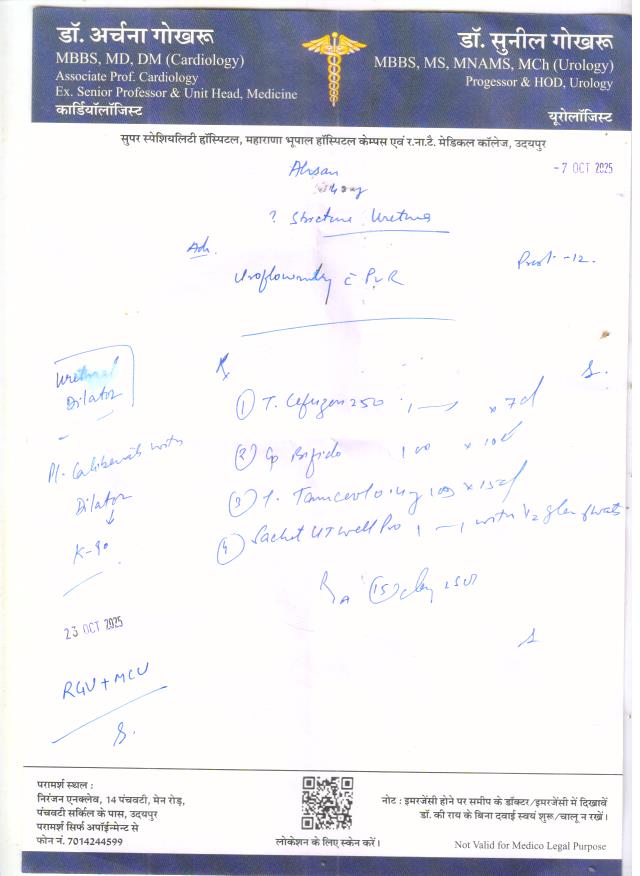 डॉ. अर्चना गोखरू
MBBS, MD, DM (Cardiology)
Associate Prof. Cardiology
Ex. Senior Professor & Unit Head, Medicine
कार्डियॉलॉजिस्ट
डॉ. सुनील गोखरू
MBBS, MS, MNAMS, MCh (Urology)
Progessor & HOD, Urology
यूरोलॉजिस्ट
सुपर स्पेशियलिटी हॉस्पिटल, महाराणा भूपाल हॉस्पिटल केम्पस एवं र.ना.टै. मेडिकल कॉलेज, उदयपुर
Ahsan
-7 OCT 2025
? Stricture Urethra
Adv.
Uroflowmetry c PVR
-12.
Urethral
Dilator
Rx
S.
① T. 250 1 x 7d
② Cap Bifido x 10d
③ T. x 15d
④ Sachet UTwell Pro 1 - 1 with 1/2 glass
Pl. with
Dilator
↓
15 day
23 OCT 2025
RGU + MCU
S.
परामर्श स्थल :
निरंजन एनक्लेव, 14 पंचवटी, मेन रोड़,
पंचवटी सर्किल के पास, उदयपुर
परामर्श सिर्फ अपॉईन्मेन्ट से
फोन नं. 7014244599
लोकेशन के लिए स्केन करें।
नोट : इमरजेंसी होने पर समीप के डॉक्टर/इमरजेंसी में दिखावें
डॉ. की राय के बिना दवाई स्वयं शुरू/चालू न रखें।
Not Valid for Medico Legal Purpose